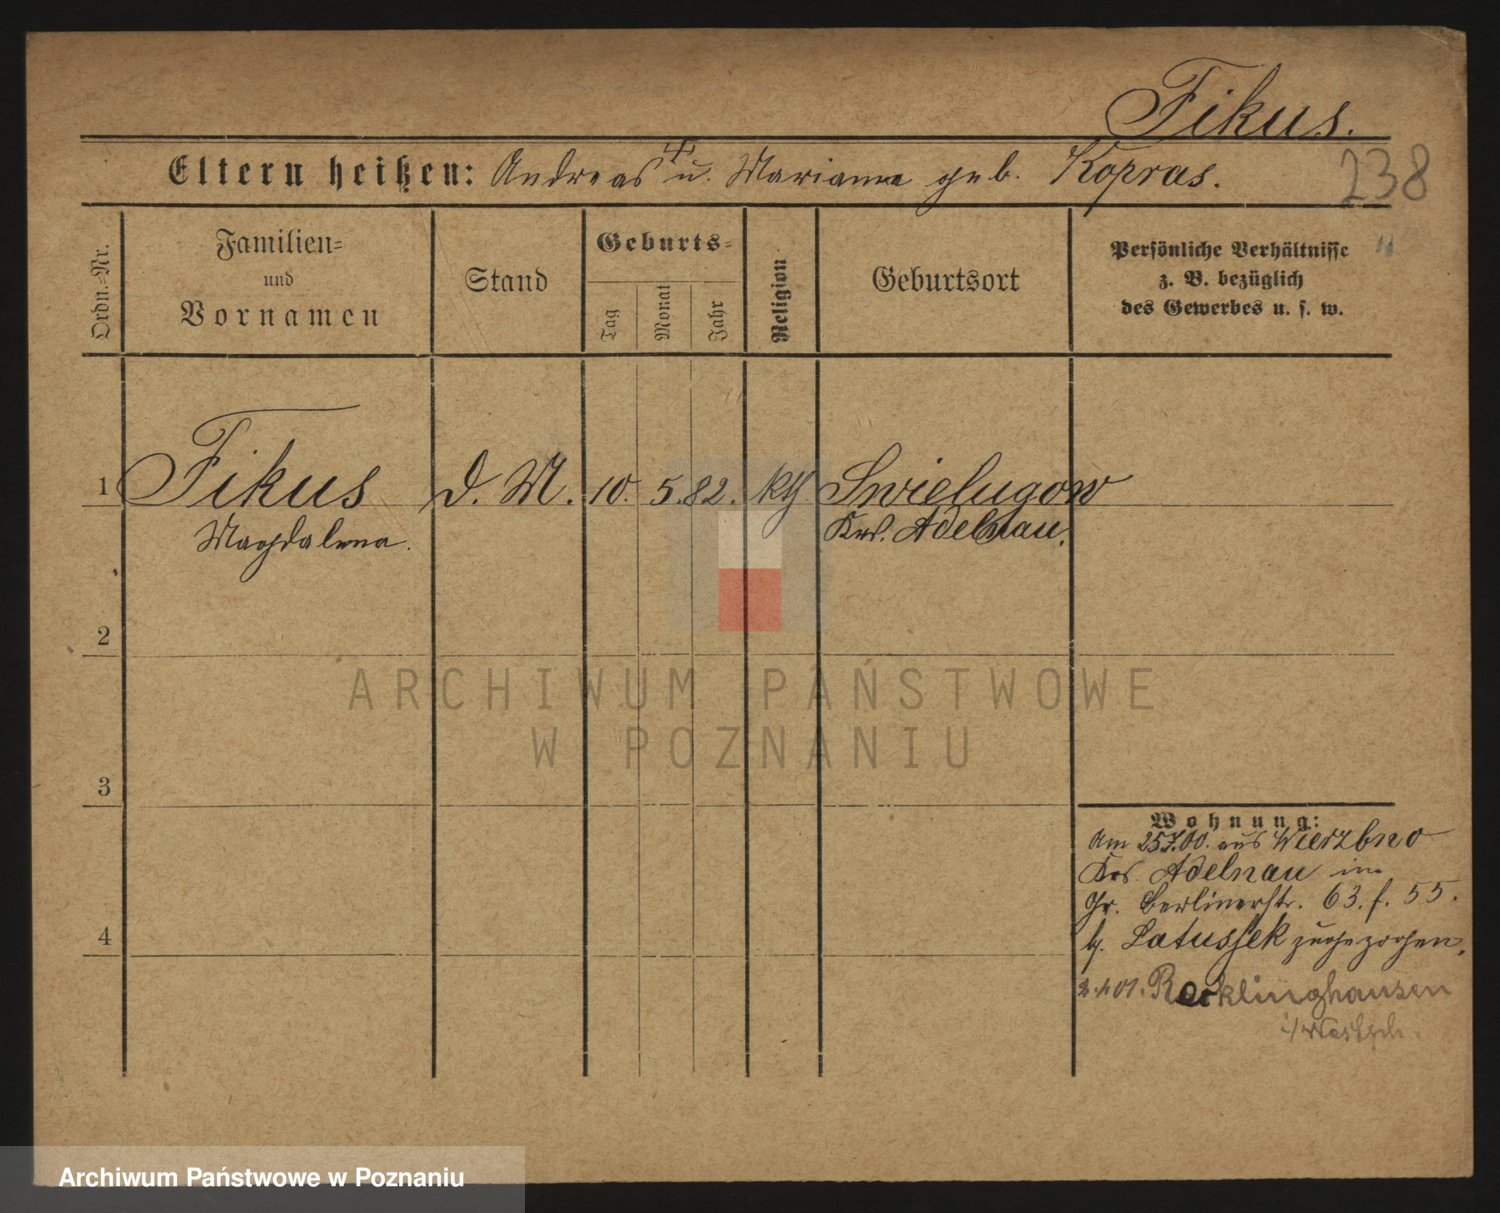 Fikus.
Eltern heißen: Andreas u. Marianna geb. Kopras.
238
Ordn.-Nr.
Familien-
und
Vornamen
Stand
Geburts-
Tag
Monat
Jahr
Religion
Geburtsort
Persönliche Verhältnisse
z. B. bezüglich
des Gewerbes u. s. w.
1 Fikus D. M. 10. 5. 82. kth Swielugow
Magdalena. Krs. Adelnau.
2
ARCHIWUM PAŃSTWOWE
W POZNANIU
3
Wohnung:
Am 25.7.00. aus Wierzbno
Krs. Adelnau in
Gr. Berlinerstr. 63. f. 55.
b. Latussek zugezogen.
01. Recklinghausen
i/Westph.
4
Archiwum Państwowe w Poznaniu